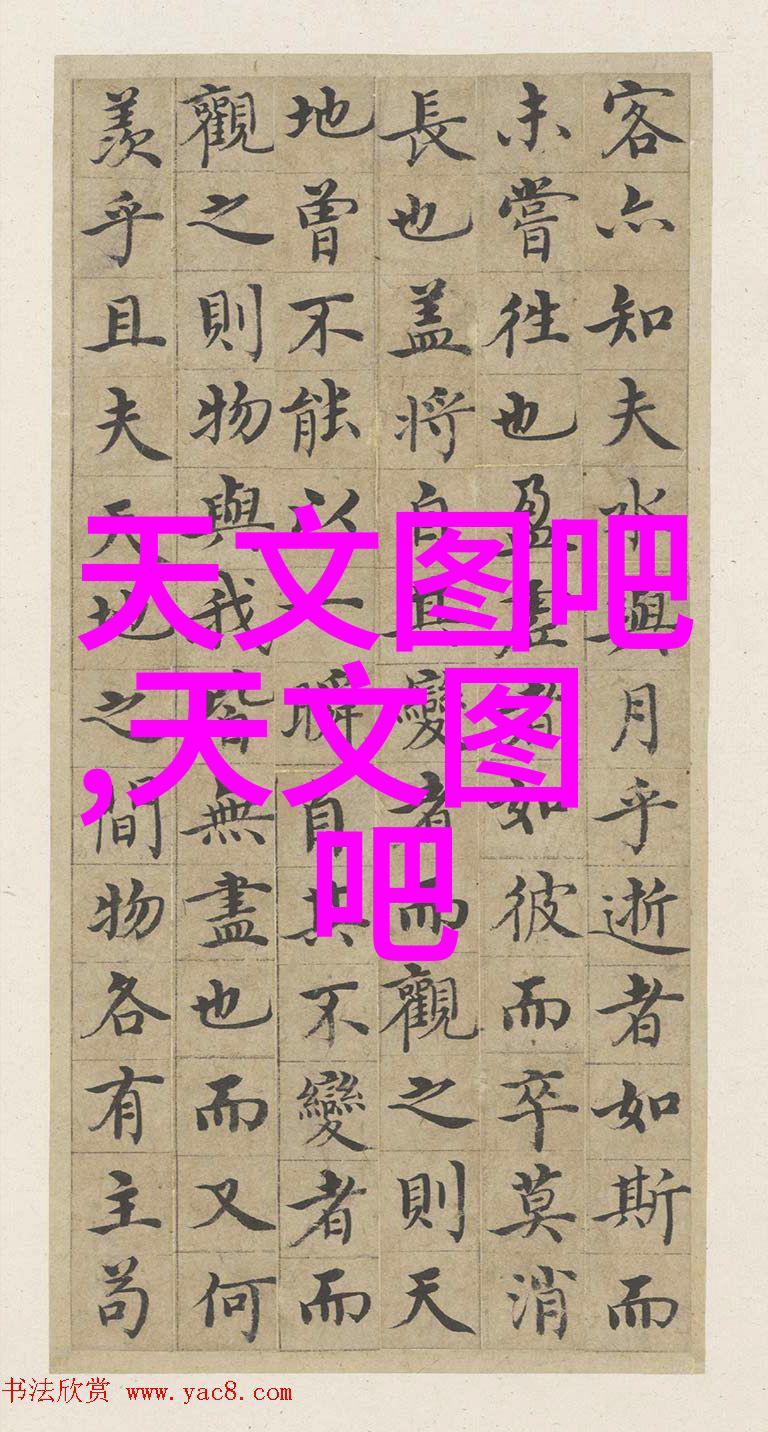 客亦知夫水與月乎逝者如斯而
未嘗往也盈虛者如彼而卒莫消
長也盖將自其變者而觀之則天
地曾不能以一瞬自其不變者而
觀之則物與我皆無盡也而又何
羨乎且夫天地之間物各有主苟
天文图吧
,天文图
吧
书法欣赏 www.yac8.com